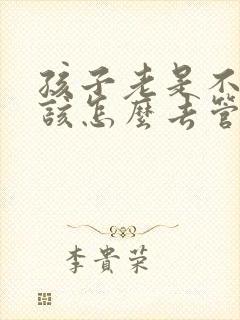 孩子老是不
該怎麼去管
李貴荣